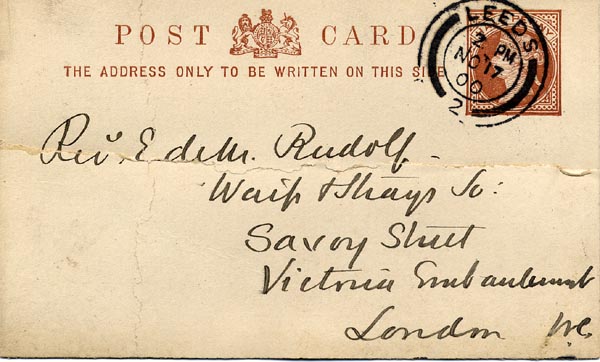 POST CARD
THE ADDRESS ONLY TO BE WRITTEN ON THIS SIDE
LEEDS
2 PM
NO 17
00
2
Rev. E de M. Rudolf
Waifs & Strays So:
Savoy Street
Victoria Embankment
London W.C.